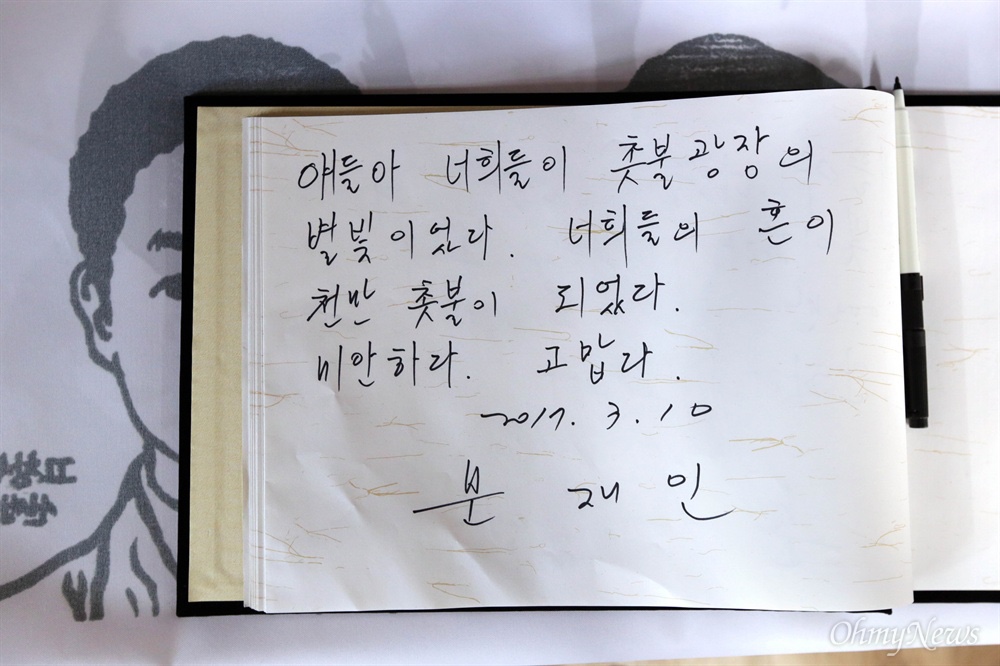 얘들아 너희들이 촛불광장의
별빛이었다. 너희들의 혼이
천만 촛불이 되었다.
미안하다. 고맙다.
2017. 3. 10
문 재 인
OhmyNews